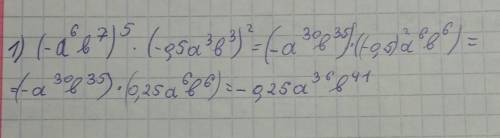 1) (-a⁶b⁷)⁵ · (-0,5a³b³)² = (-a³⁰b³⁵) · ((-0,5)²a⁶b⁶) =
=(-a³⁰b³⁵) · (0,25a⁶b⁶) = -0,25a³⁶b⁴¹